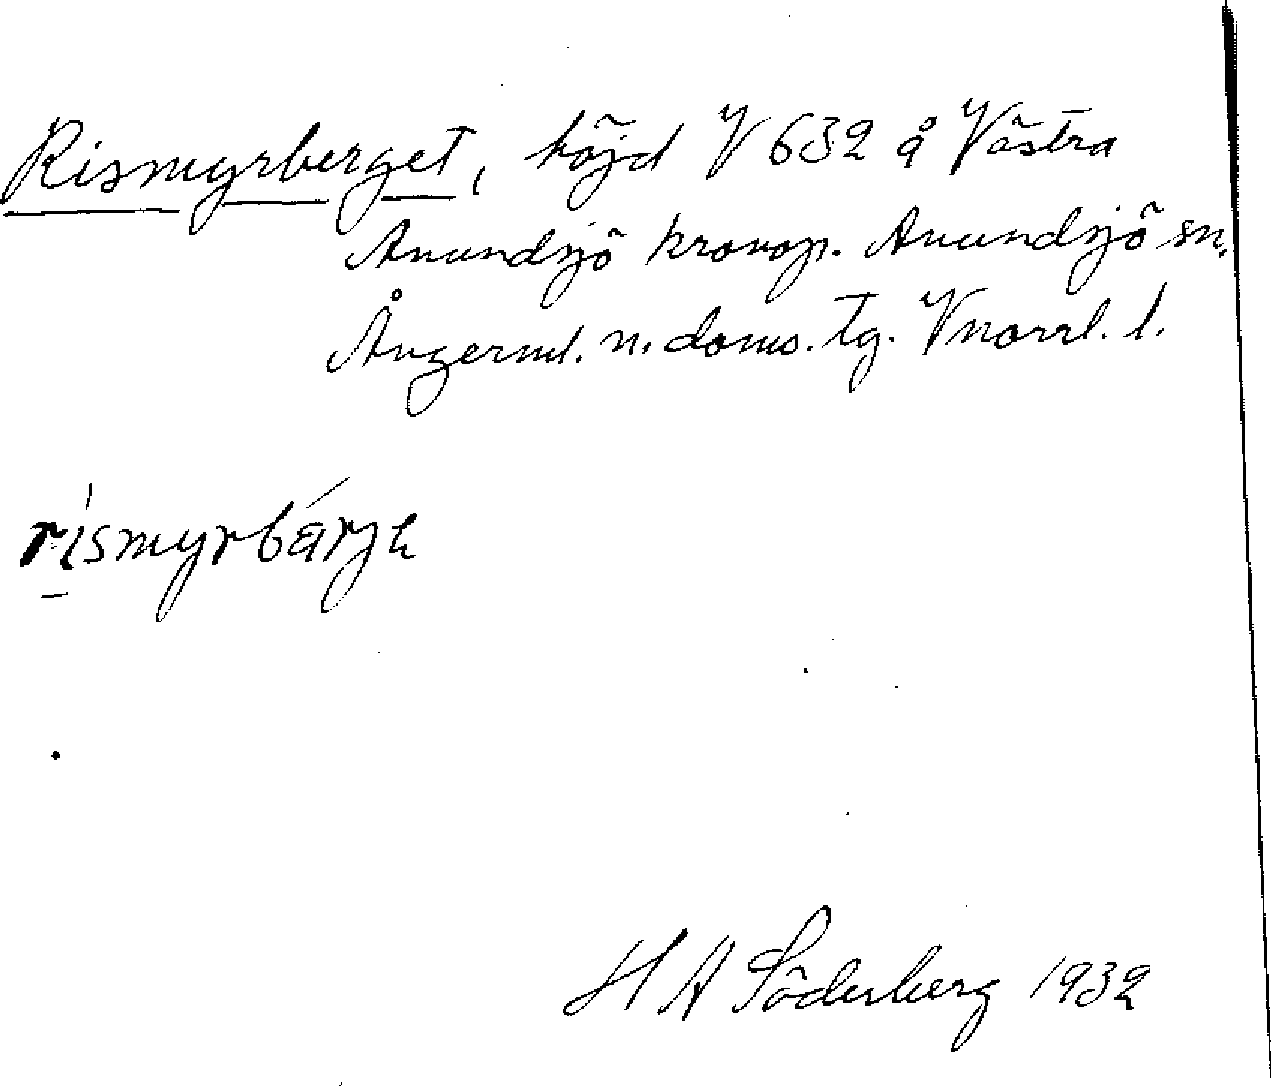 Rismyrberget, höjd V 632 å Västra
Anundsjö kronop. Anundsjö sn.
Ångerml. n. doms. tg. Vnorrl. l.
rismyrbärje
H A Söderberg 1932